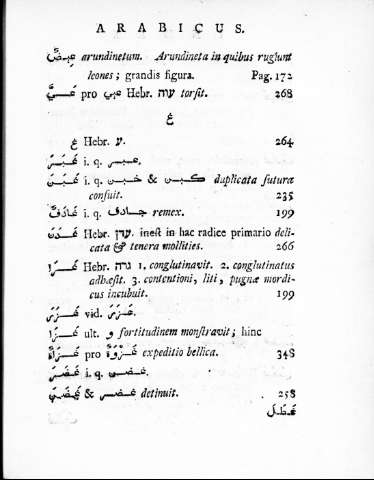 ARABICUS.
عيص arundinetum. Arundineta in quibus rugiunt
leones; grandis figura. Pag. 172
pro عيي Hebr. עוה torsit. 268
غ
غ Hebr. ע. 264
غبر i. q. عبر.
غبن i. q. خبن & كبن duplicata sutura
consuit. 235
غادف i. q. جادف remex. 199
غدن Hebr. עדן. inest in hac radice primario deli-
cata & tenera mollities. 266
غرا Hebr. גרה 1. conglutinavit. 2. conglutinatus
adhæsit. 3. contentioni, liti, pugnæ mordi-
cus incubuit. 199
vid.
غزا ult. و fortitudinem monstravit; hinc
غزاة pro غزوة expeditio bellica. 348
i. q.
& detinuit. 258